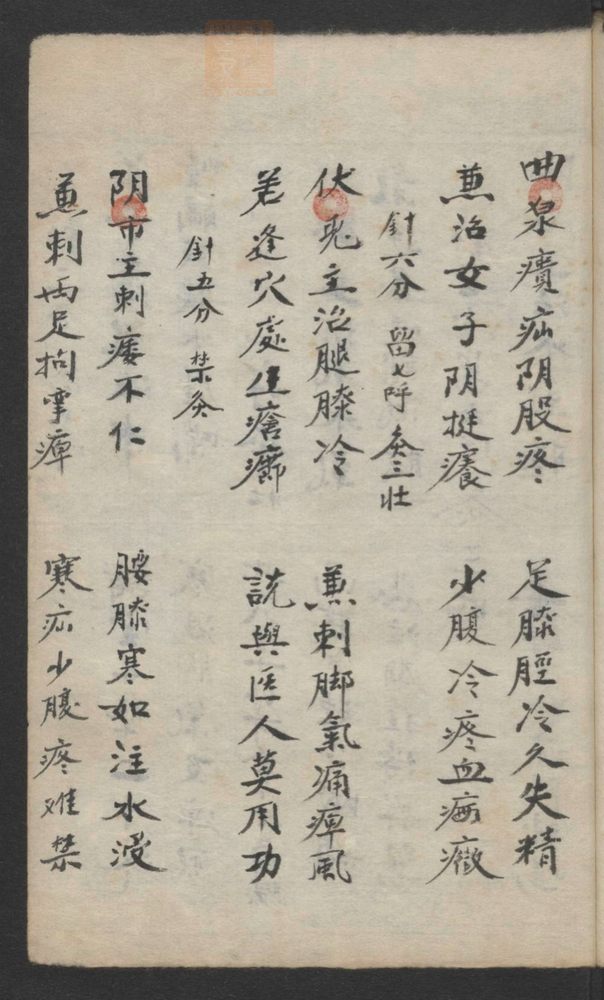 曲泉㿉疝阴股疼　足膝脛冷久失精
兼治女子阴挺癢　少腹冷疼血病癥
針六分　留七呼　灸三壮
伏兎主治腿膝冷　兼刺脚氣痛痺風
若逢穴處生瘡癤　説與医人莫用功
針五分　禁灸
阴市主刺痿不仁　腰膝寒如注水浸
兼刺两足拘挛痺　寒疝少腹疼难禁